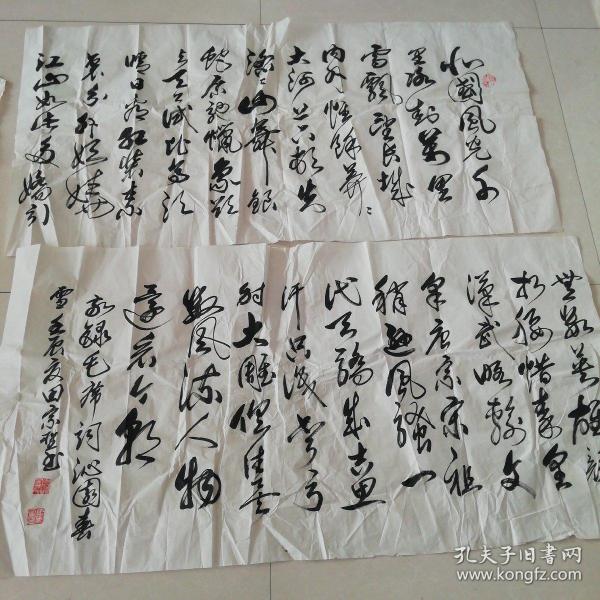 北國風光千
里冰封萬里
雪飄望長城
内外惟餘莽々
大河上下頓失
滔々山舞銀
蛇原馳蠟象欲
与天公試比高須
晴日看紅裝素
裹分外妖嬈
江山如此多嬌引
無數英雄競
折腰惜秦皇
漢武略輸文
采唐宗宋祖
稍遜風騷一
代天驕成吉思
汗只識彎弓
射大雕俱往矣
數風流人物
還看今朝
敬録毛主席詞沁園春
雪壬辰夏田京书
孔夫子旧书网
www.kongfz.com